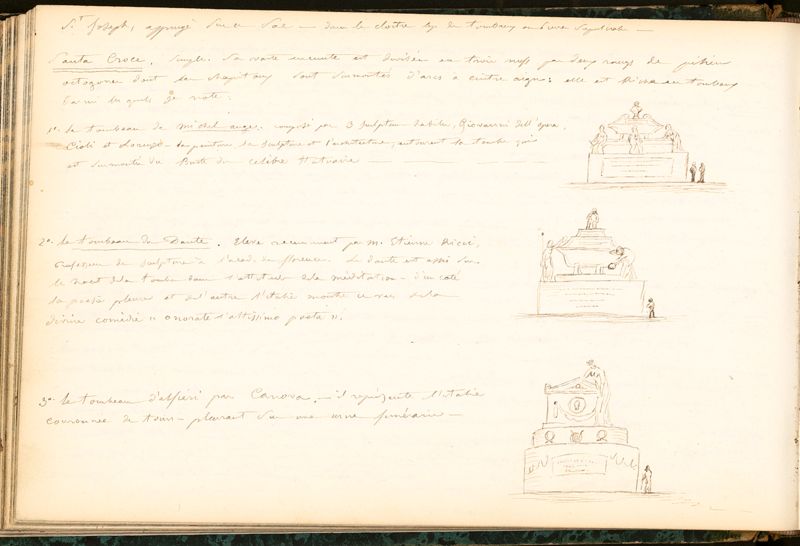 St Joseph, appuyé sur le sol — dans le cloitre de tombeaux
Santa Croce. Simple. Sa vaste enceinte est divisée en trois nefs par deux rangs de piliers
octogones dont les chapiteaux sont surmontés d'arcs a cintre aigu; elle est riche en tombeaux
parmi lesquels je note.
1º le tombeau de Michel ange. composé par 3 sculpteurs habiles, Giovanni dell'opera,
Cioli et Lorenzi — la peinture la sculpture et l'architecture, entourent la tombe qui
est surmontée du Buste du celebre statuaire
2º le tombeau de Dante. Elevé recemment par m. Etienne Ricci,
professeur de sculpture à l'acad. de florence. Le dante est assis sur
le haut de la tombe dans l'attitude de la méditation — d'un coté
la poesie pleure et de l'autre l'Italie montre ce vers de la
divine comédie « onorate l'altissimo poeta ».
3º le tombeau d'alfieri par Canova. — il représente l'Italie
couronnée de tours — pleurant sur une urne funéraire —